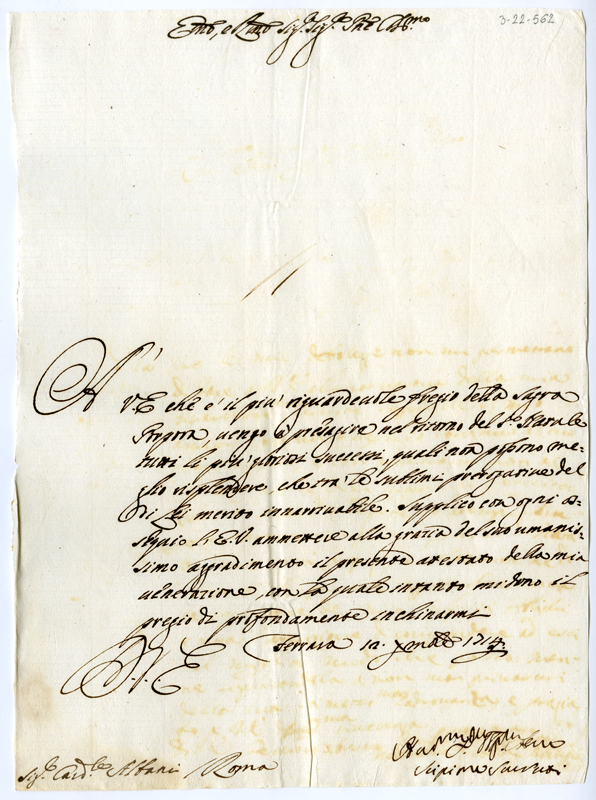 3-22-562
Em͂o, e Rm͂o Sig.r Sig.r Pñe Col.mo
A
V.E che e' il piu' riguardeuole fregio della Sagra
Porpora, uengo à presagire nel ritorno del S.to Natale
tutti li piu' gloriosi successi, quali non possono me-
glio risplendere, che trà le sublimi prerogatiue del
Di Lei merito innarriuabile. Supplico con ogni os-
sequio l'E.V. ammettere alla grazia del suo umanis-
simo agradimento il presente attestato della mia
uenerazione, con la quale intanto mi dono il
pregio di profondamente inchinarmi
Ferrara 12. Xmbre 1714.
D. V. E
Scipione Sacrati
Sig.r Card.le Albani Roma